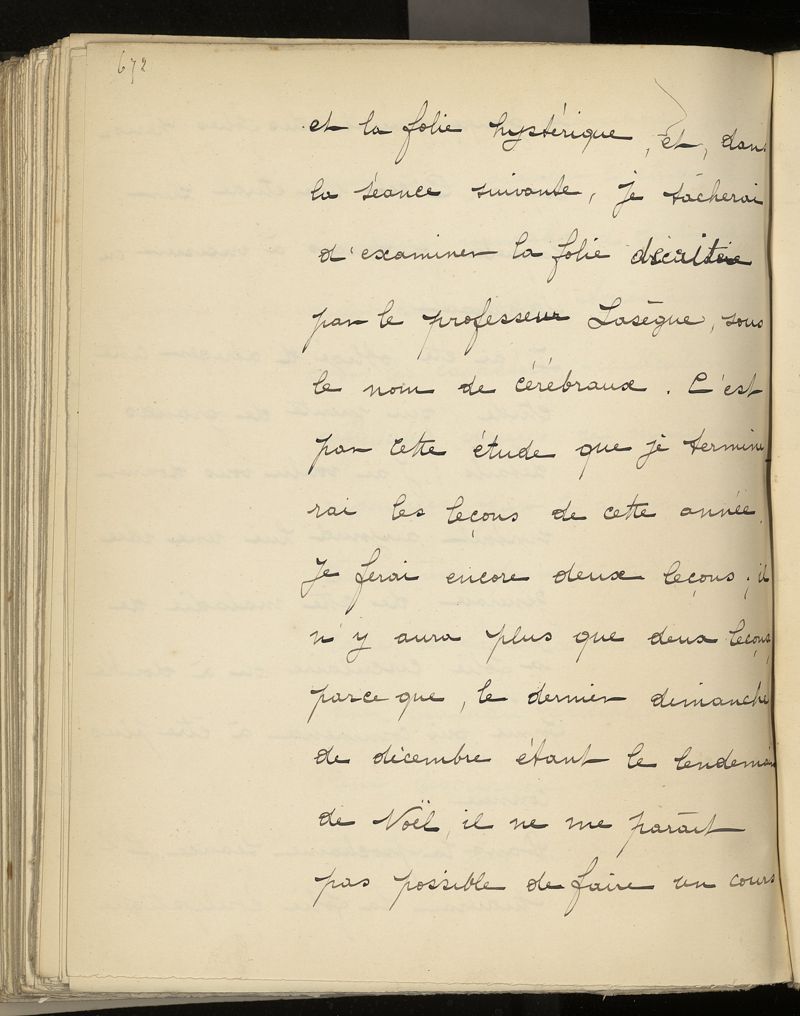 672
et la folie hystérique, et, dans
la séance suivante, je tâcherai
d'examiner la folie décrite
par le professeur Lasègue, sous
le nom de cérébraux. C'est
par cette étude que je termine-
rai les leçons de cette année.
Je ferai encore deux leçons; il
n'y aura plus que deux leçons,
parce que, le dernier dimanche
de décembre étant le lendemain
de Noël, il ne me paraît
pas possible de faire un cours